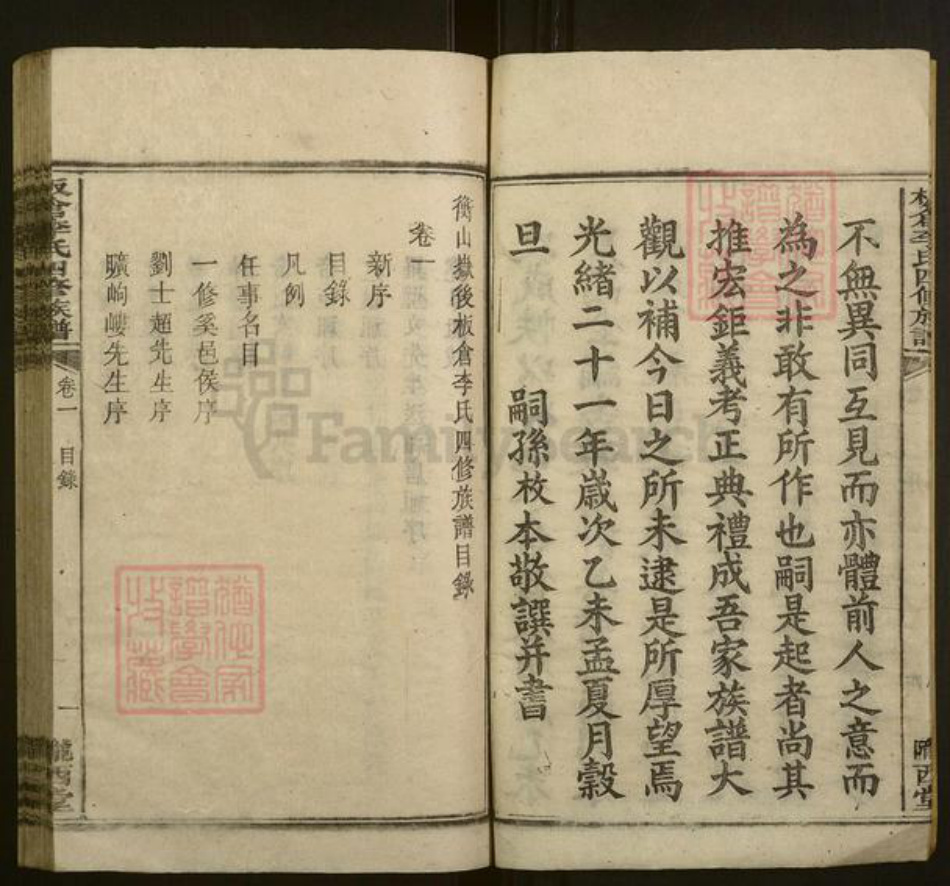 不無異同互見而亦體前人之意而
為之非敢有所作也嗣是起者尚其
推宏鉅義考正典禮成吾家族譜大
觀以補今日之所未逮是所厚望焉
光緒二十一年歲次乙未孟夏月穀
旦 嗣孫枚本敬譔并書
板倉李氏四修族譜
隴西堂
衡山嶽後板倉李氏四修族譜目錄
卷一
新序
目錄
凡例
任事名目
一修奚邑侯序
劉士超先生序
曠岣嶁先生序
板倉李氏四修族譜
卷一
目錄
一
隴西堂
FamilySearch